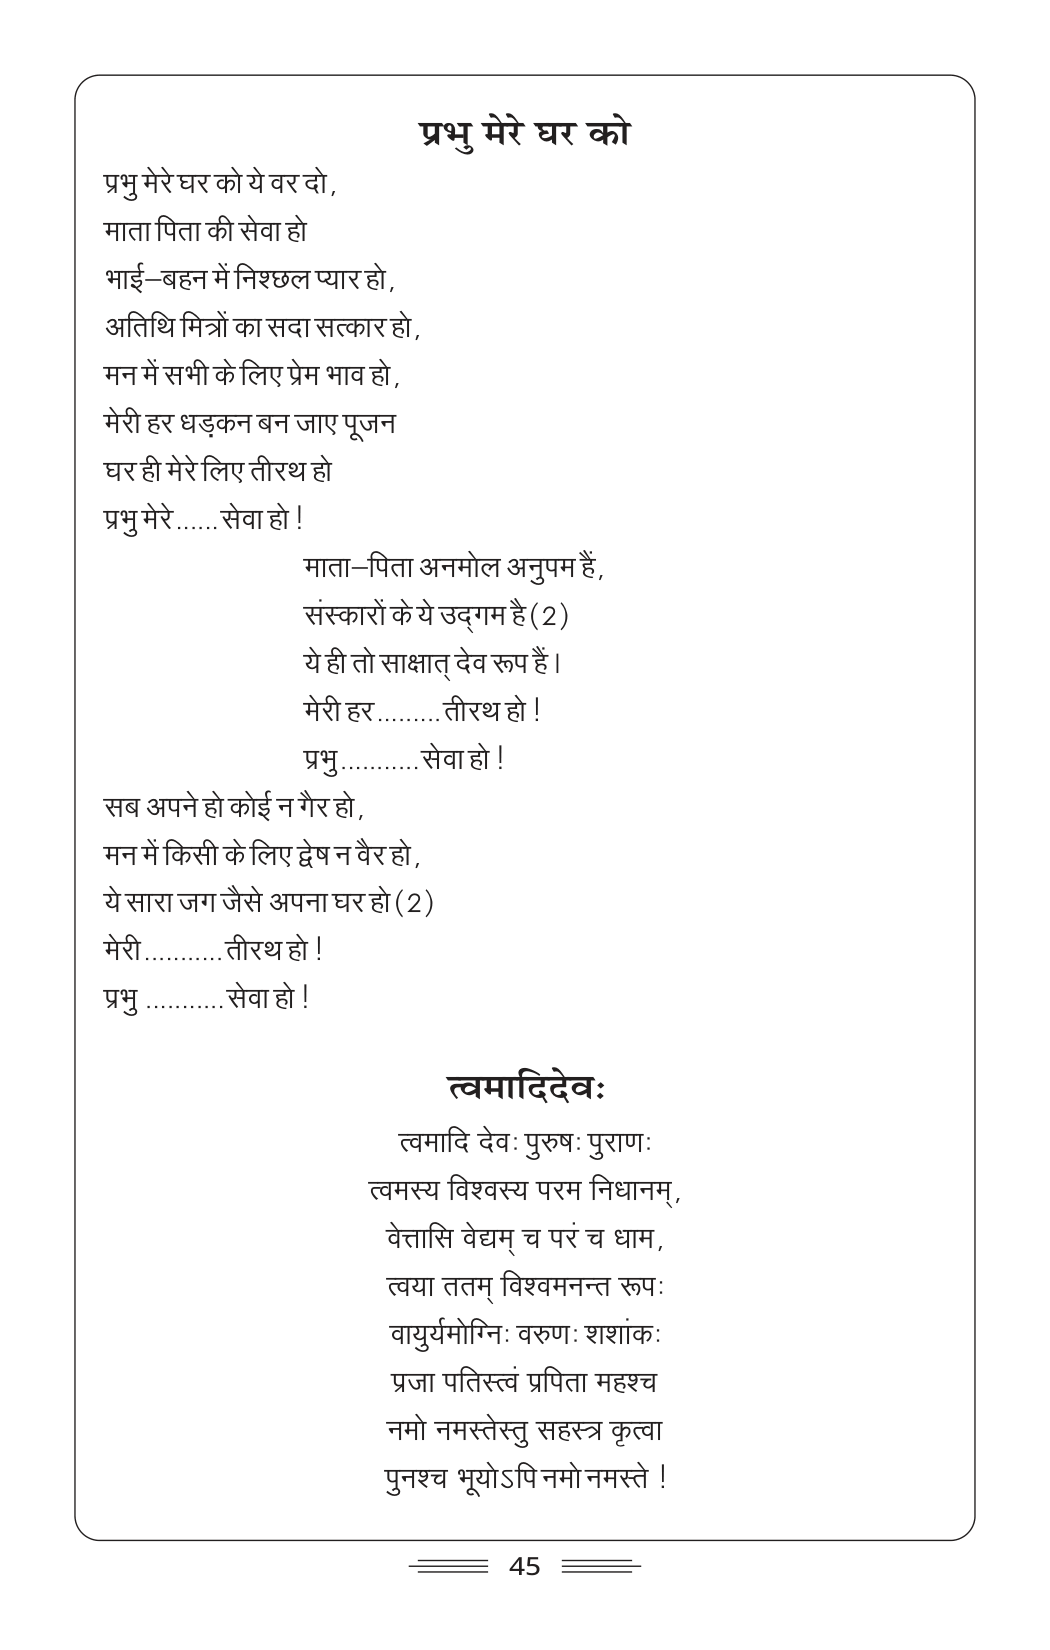 प्रभु मेरे घर को
प्रभु मेरे घर को ये वर दो,
माता पिता की सेवा हो
भाई–बहन में निश्छल प्यार हो,
अतिथि मित्रों का सदा सत्कार हो,
मन में सभी के लिए प्रेम भाव हो,
मेरी हर धड़कन बन जाए पूजन
घर ही मेरे लिए तीरथ हो
प्रभु मेरे......सेवा हो !
माता–पिता अनमोल अनुपम हैं,
संस्कारों के ये उद्गम है (2)
ये ही तो साक्षात् देव रूप हैं।
मेरी हर.........तीरथ हो !
प्रभु...........सेवा हो !
सब अपने हो कोई न गैर हो,
मन में किसी के लिए द्वेष न वैर हो,
ये सारा जग जैसे अपना घर हो (2)
मेरी...........तीरथ हो !
प्रभु ...........सेवा हो !
त्वमादिदेवः
त्वमादि देवः पुरुषः पुराणः
त्वमस्य विश्वस्य परम निधानम्,
वेत्तासि वेद्यम् च परं च धाम,
त्वया ततम् विश्वमनन्त रूपः
वायुर्यमोग्निः वरुणः शशांकः
प्रजा पतिस्त्वं प्रपिता महश्च
नमो नमस्तेस्तु सहस्त्र कृत्वा
पुनश्च भूयोऽपि नमो नमस्ते !
45